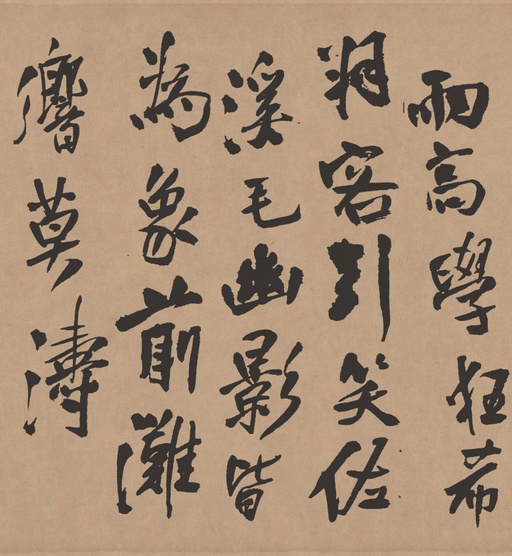 雨高學狂希
翔客引笑佐
溪毛幽影皆
為象前灘
響莫濤